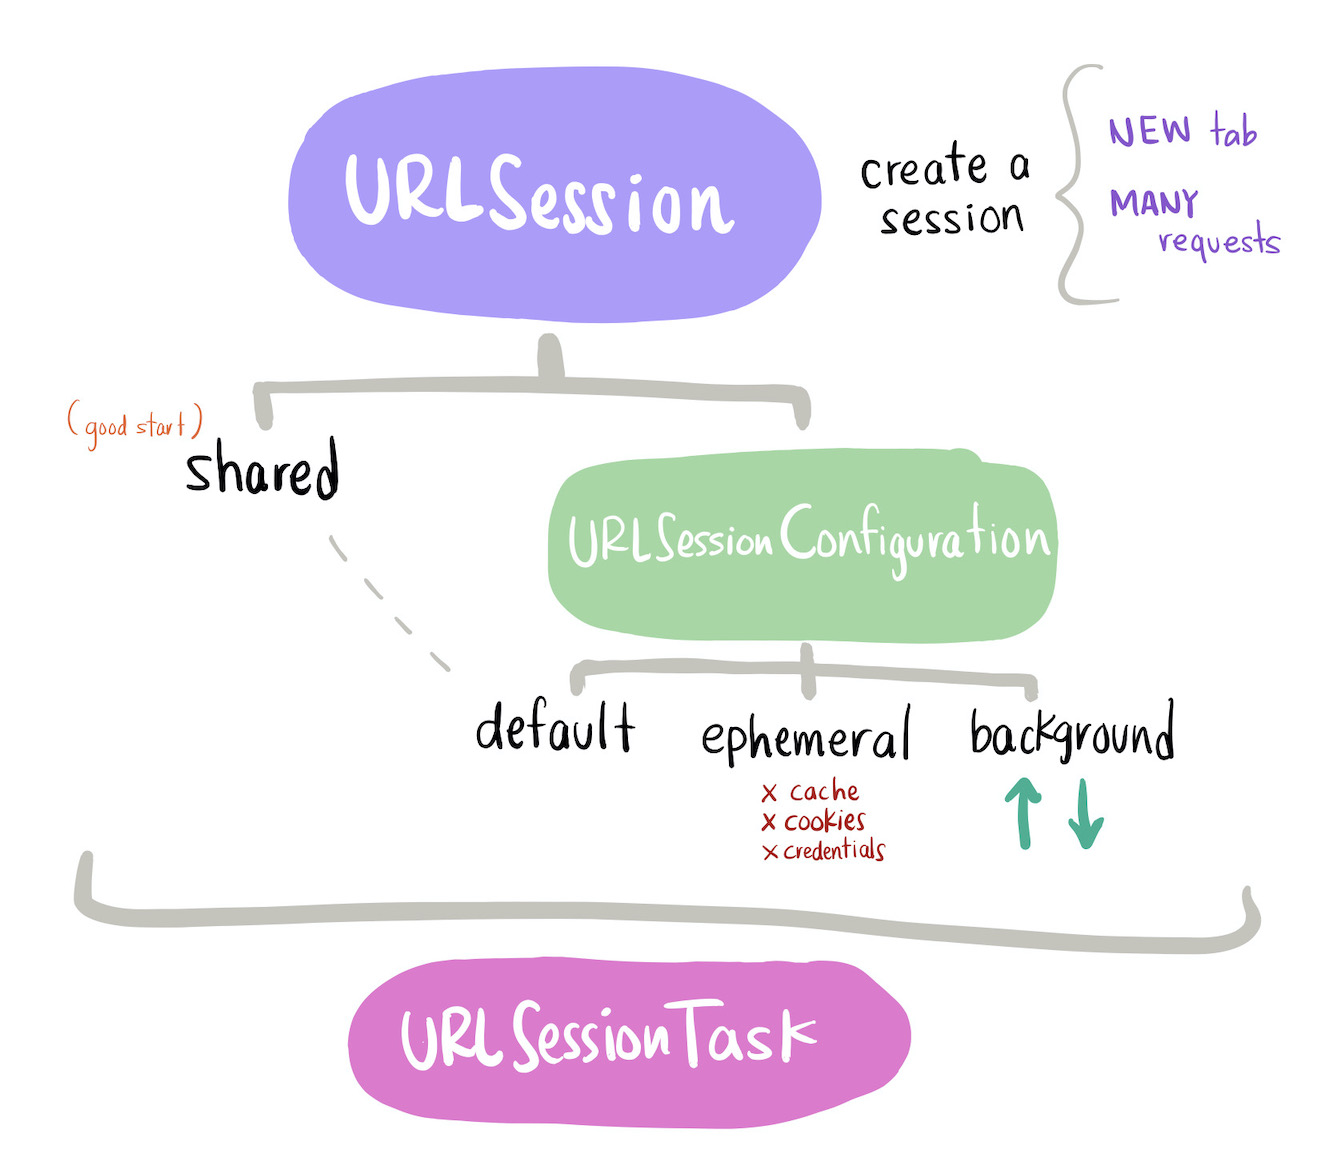 URLSession
create a
session
NEW tab
MANY
requests
(good start)
shared
URLSessionConfiguration
default
ephemeral
background
x cache
x cookies
x credentials
URLSessionTask